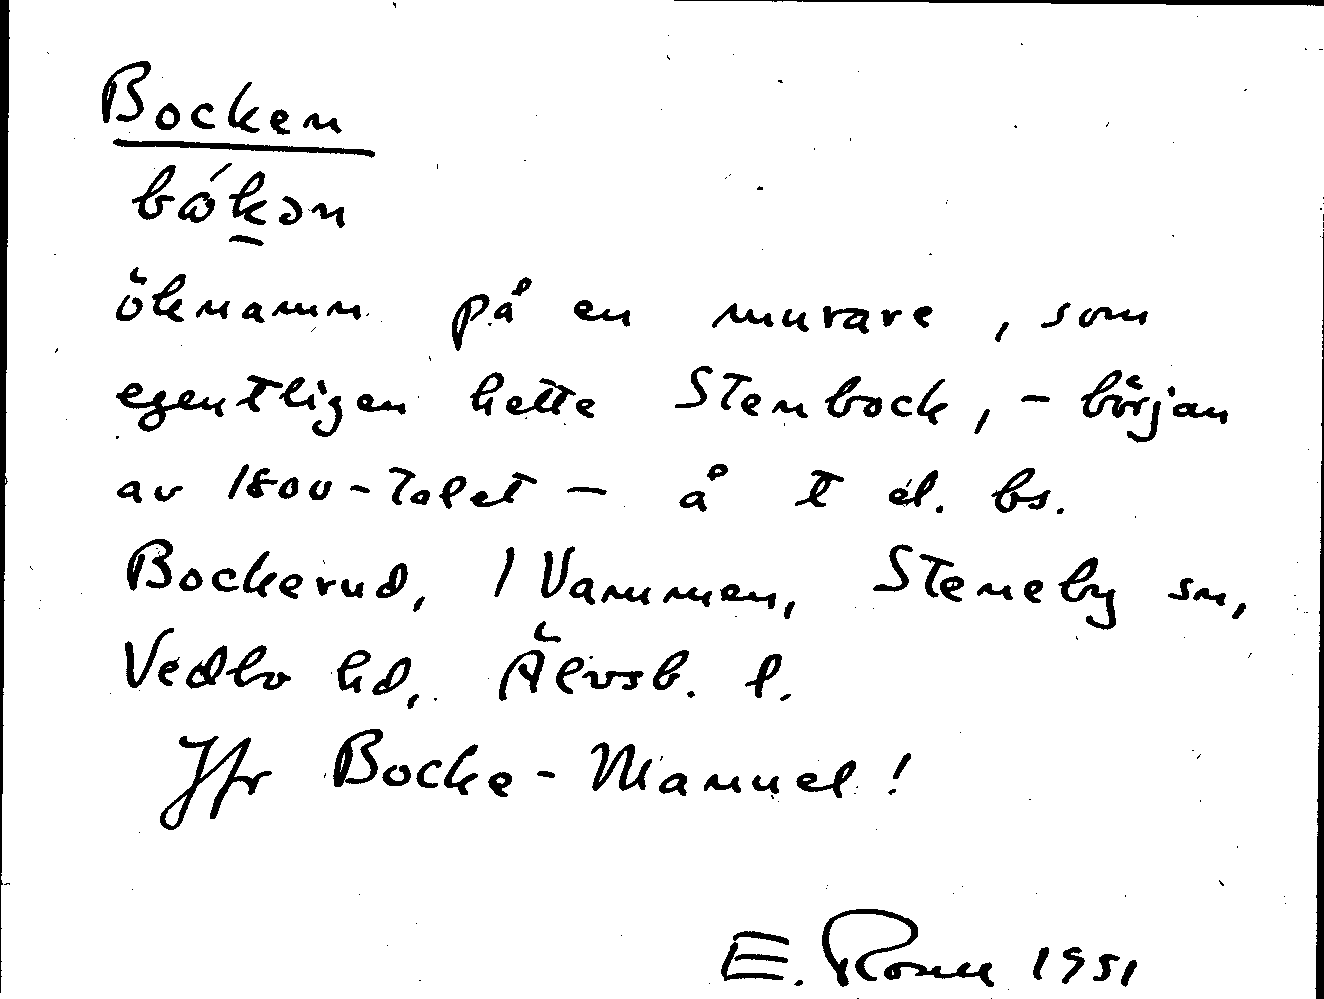 Bocken
bókən
öknamn på en murare, som
egentligen hette Stenbock, – början
av 1800-talet – å t el. bs.
Bockerud, 1 Vammen, Steneby sn,
Vedbo hd, Älvsb. l.
Jfr Bocke-Manuel!
E. 1951